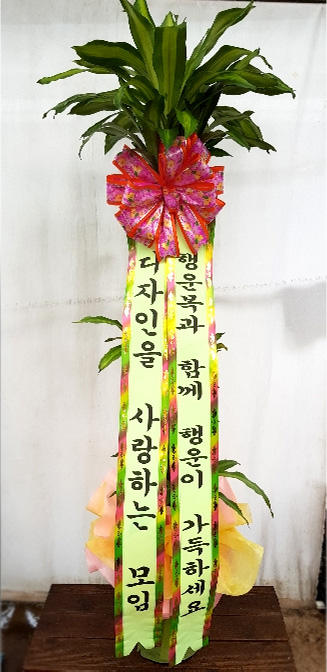 행운목과 함께 행운이 가득하세요
디자인을 사랑하는 모임